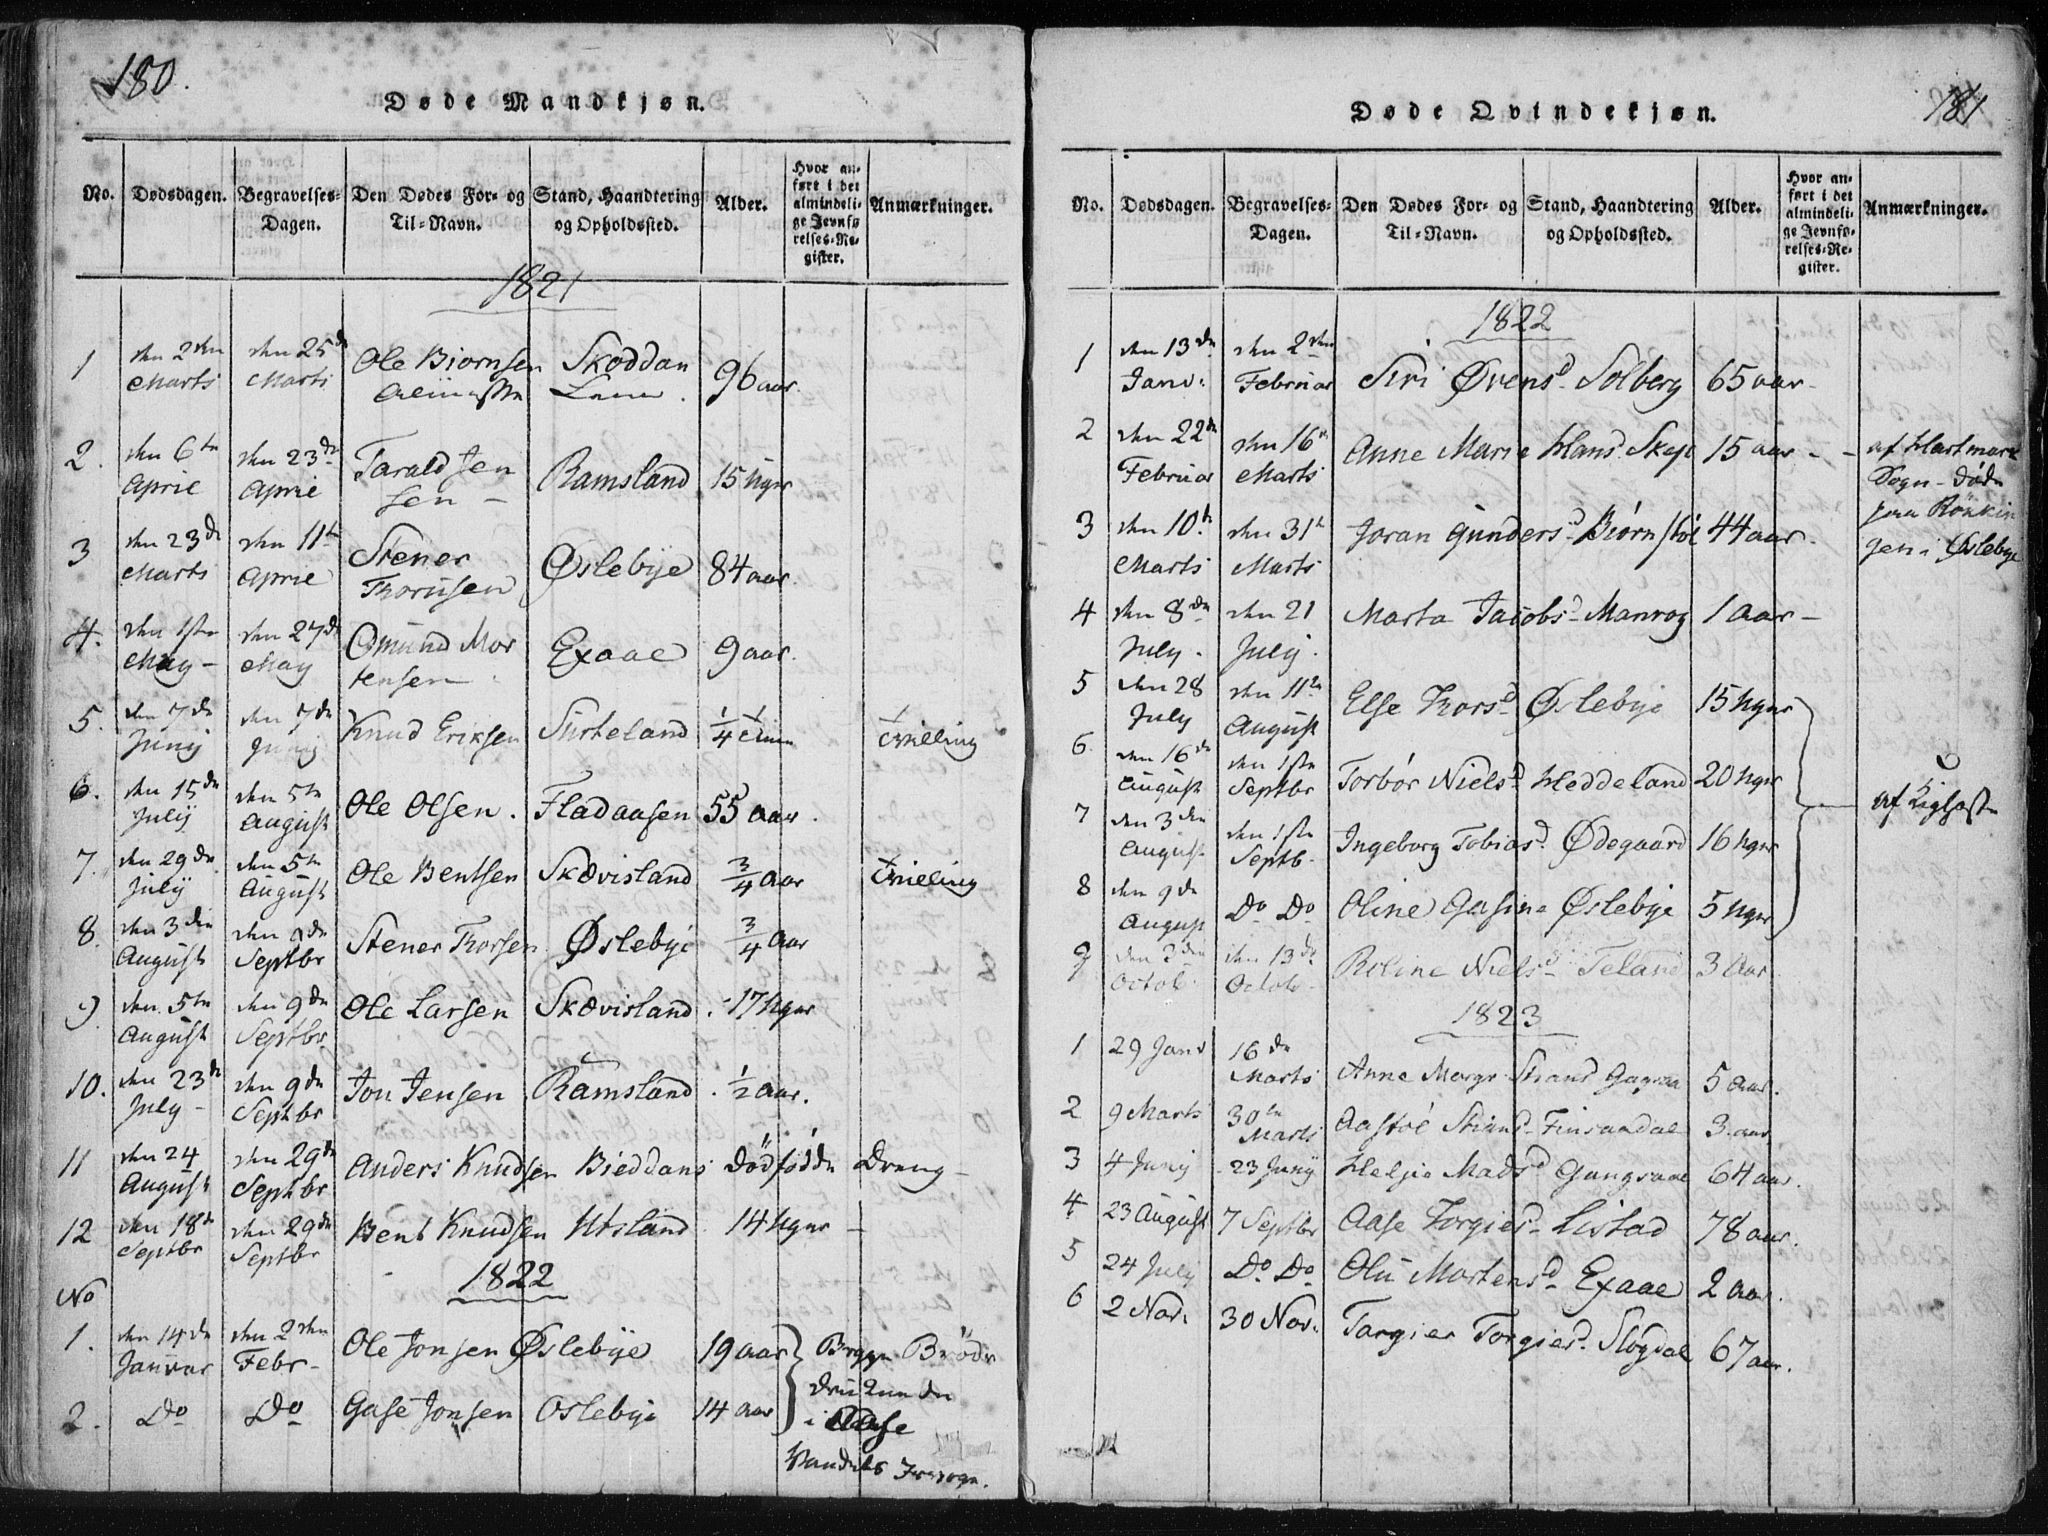 180.
Døde Mandkjøn.
No. Dødsdagen. Begravelses-Dagen. Den Dødes For- og Til-Navn. Stand, Haandtering og Opholdssted. Alder. Hvor anført i det almindelige Jevnførelses-Register. Anmærkninger.
1821
1 den 2den Marts den 25de Marti Ole Biornsen Skoddan 96 aar.
2. den 6te April den 23de April Tarald Jensen Ramsland 15 uger
3 den 23de Marts den 11te April Stener Thorusen Øslebye 84 aar.
4. den 1ste May den 27de May Osmund Mortensen Exaae 9 aar.
5. den 7de Junij den 7de Junij Knud Eriksen Sirteland 1/4 Time Tvilling
6. den 15de Julij den 5te August Ole Olsen. Fladaasen 55 aar.
7. den 29de Julij den 5te August Ole Bentsen Skævisland 3/4 aar Tvilling
8. den 3die August den 9de Septbr Stener Thorsen Øslebye 3/4 aar
9. den 5te August den 9de Septbr Ole Larsen Skævisland. 17 uger
10. den 23de July den 9de Septbr Jon Jensen Ramsland. 1/2 aar.
11 den 24 August den 29de Septbr Anders Knudsen Bieddans dödfödde Dreng
12 den 18de Septbr den 29de Septbr Bent Knudsen Utsland 14 uger
1822
No
1. den 14de Januar den 2den Febr Ole Jonsen Øslebye 19 aar } Begge Brödr
2. Do Do Gase Jonsen Oslebye 14 aar druknede
i Aase
Vandets
181
Døde Qvindekjøn.
No. Dødsdagen. Begravelses-Dagen. Den Dødes For- og Til-Navn. Stand, Haandtering og Opholdssted. Alder. Hvor anført i det almindelige Jevnførelses-Register. Anmærkninger.
1822
1 den 13de Janv: den 2den Februar Siri Ovensd. Solberg 65 aar
2 den 22de Februar den 16de Marts Anne Marie Hansd. 15 aar af Hartmark Sogn død
3 den 10de Marts den 31te Marts Joran Gundersd. Biørnstöl 44 aar. i Øslebye
4 den 8de July. den 21 July. Marta Jacobsd. Manrog 1 Aar
5 den 28 July den 11te August Else Thorsd. Øslebye 15 uger
6. den 16de August den 1ste Septbr Torbør Nielsd. Heddeland 20 uger
7 den 3die August den 1ste Septb. Ingeborg Tobiasd. Ødegaard 16 uger
8 den 9de August Do Do Oline Gasine Øslebye 5 uger } af Kighoste
9 den 3die Octob. den 13de Octob. Roline Nielsd. Teland 3 Aar
1823
1 29 Janv 16de Marts Anne Margr. 5 aar.
2 9 Marts 30te Marts Aastöe Stiansd. Finsaadal 3 aar
3 4 Junij 23 Junij Heljie Madsd. Gangsaae 64 aar.
4 23 August 7 Septbr Aase Torgiesd. Listad 78 aar.
5 24 July Do Do Olu Mortensd. Exaae 2 aar.
6 2 Nov: 30 Nov: Targier Torgiesd. Slogdal 67 aar.